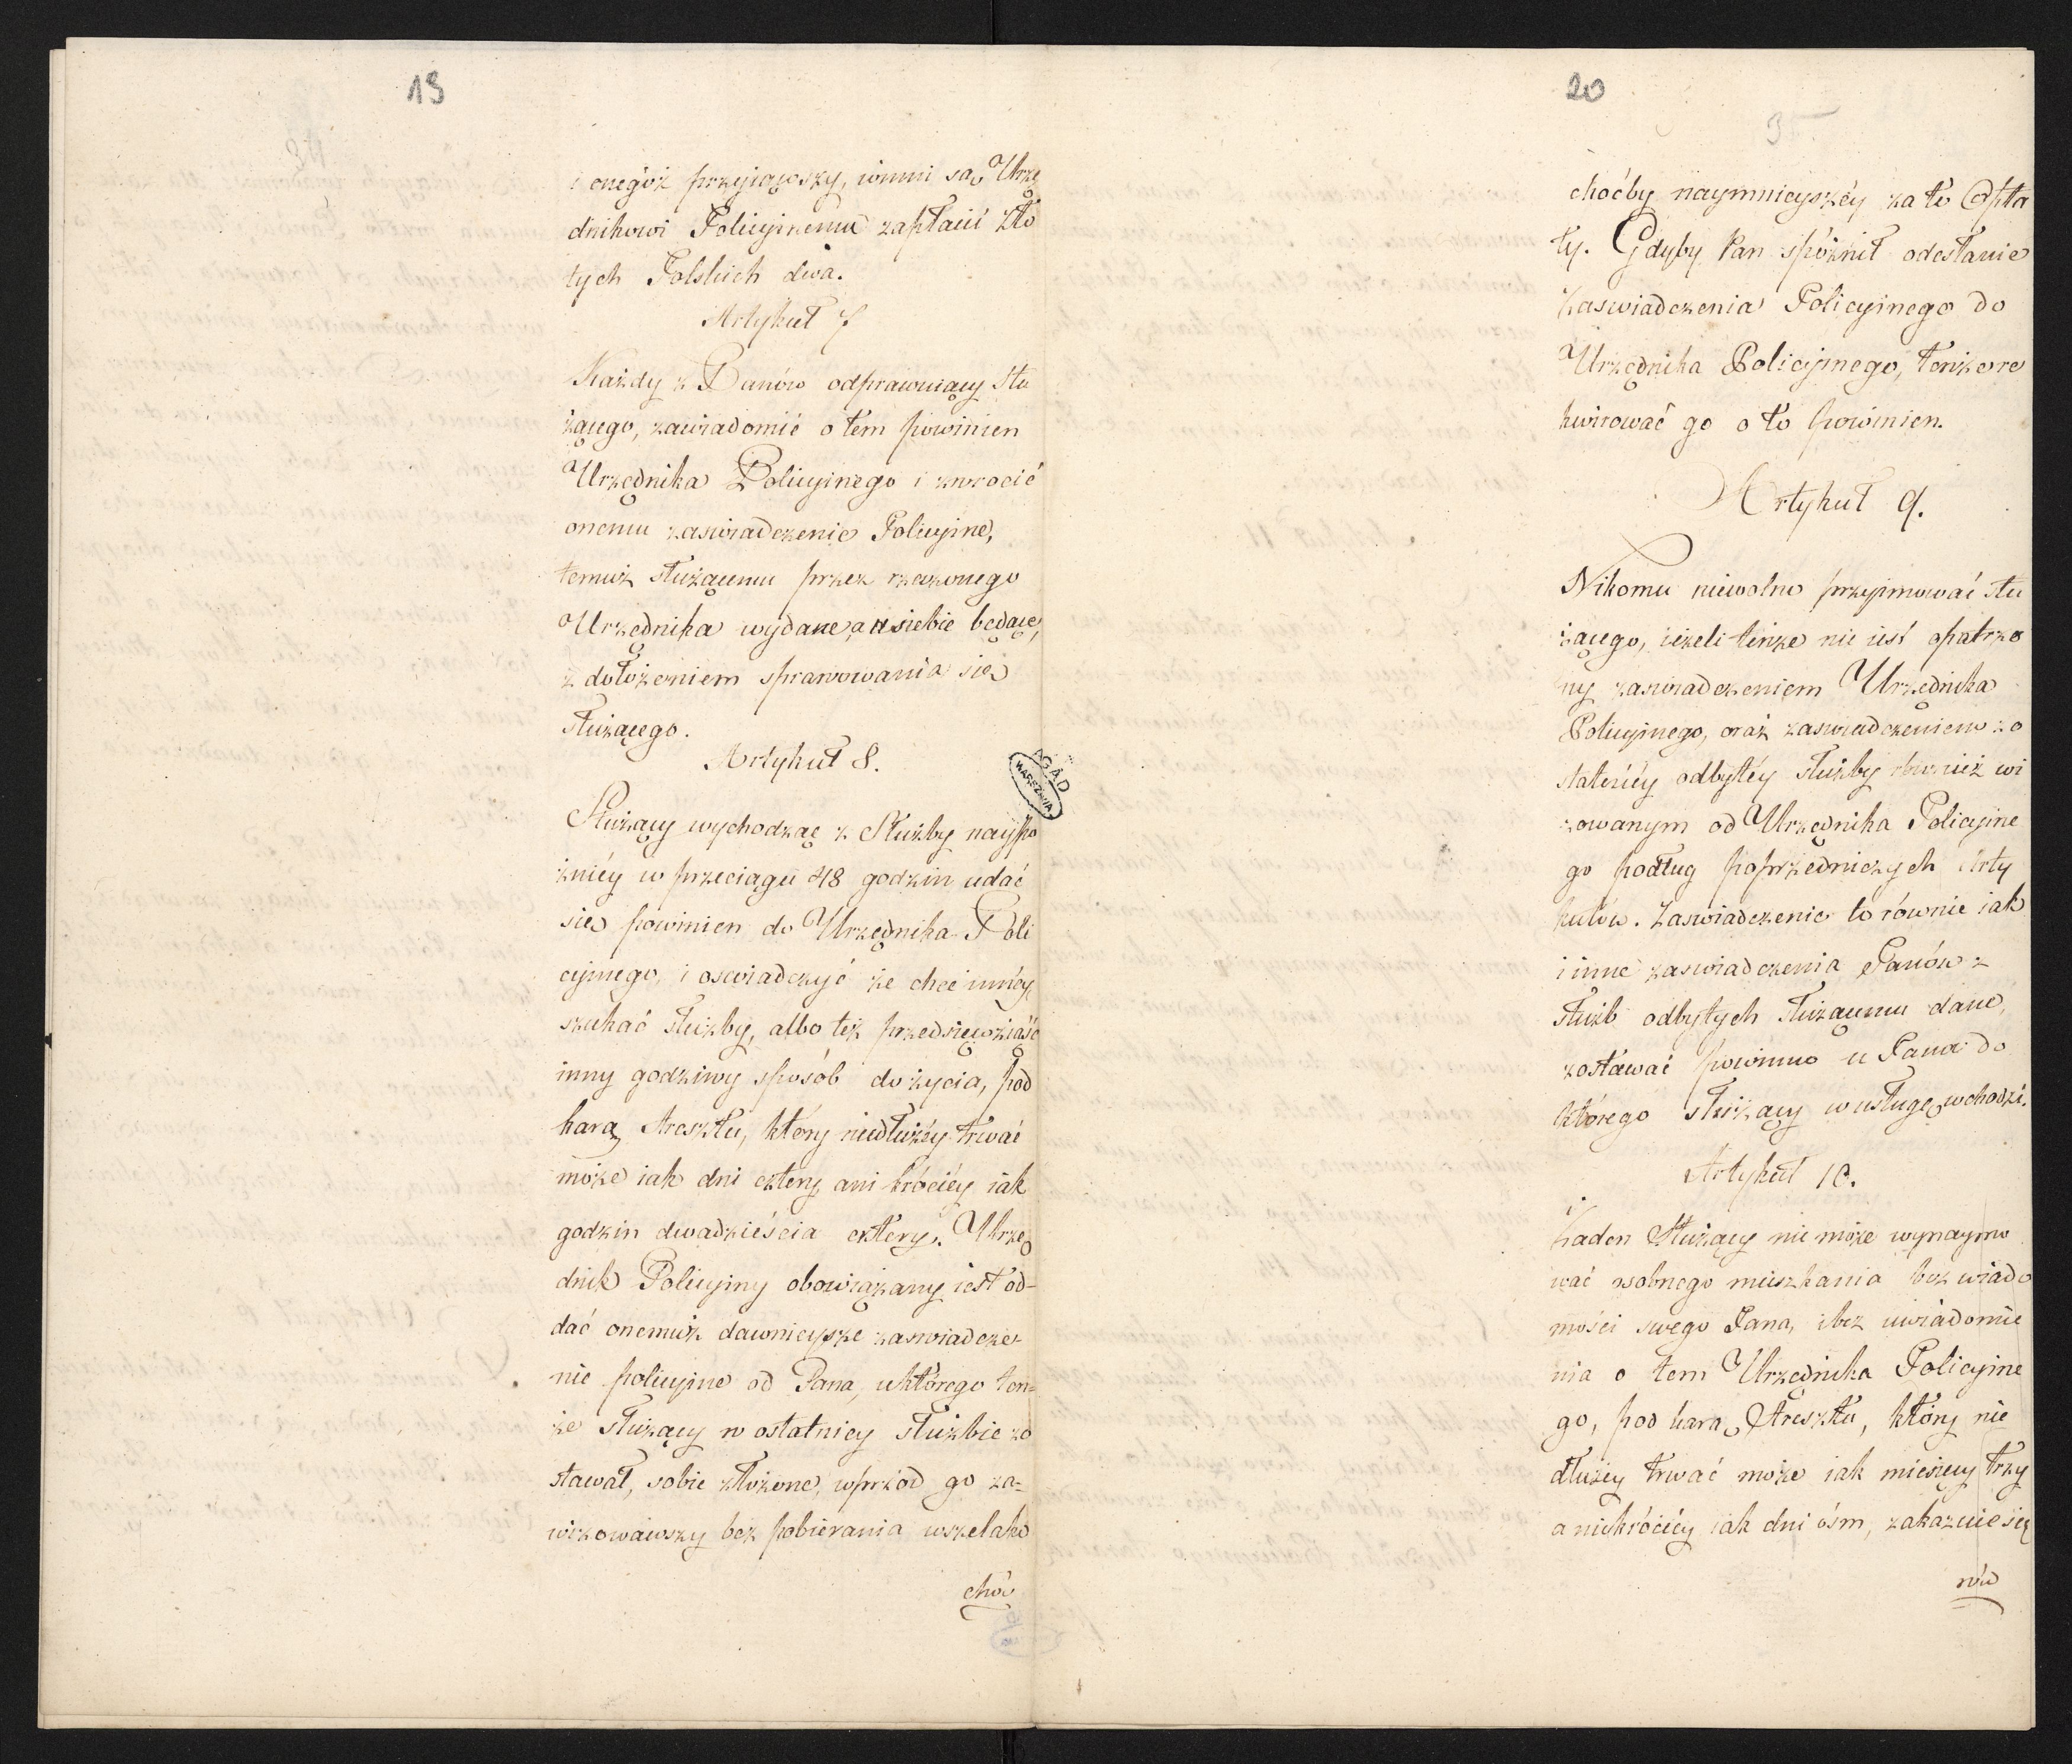 19
i onegóż przyiąwszy, winni są Urzę
dnikowi Policyinemu zapłacić Zło
tych Polskich dwa.
Artykuł 7
Każdy z Panów odprawuiący słu
żącego, zawiadomić o tem powinien
Urzędnika Policyinego i zwrocić
onemu zaswiadczenie Policyine,
temuż służącemu przez rzeczonego
Urzędnika wydane, a u siebie będące,
z dołożeniem sprawowania się
służącego.
Artykuł 8.
Służący wychodząc z Służby nayspo
źniéy w przeciągu 48 godzin udać
się powinien do Urzędnika Poli
cyinego, i oswiadczyć że chce innéy
szukać służby, albo też przedsięwziąść
inny godziwy sposób do życia, pod
karą Aresztu, który niedłużéy trwać
może iak dni cztery, ani króciéy iak
godzin dwadzieścia cztery. Urzę
dnik Policyiny obowiązany iest od-
dać onemuż dawnieysze zaswiadcze-
nie policyine od Pana, u którego ten=
że służący w ostatniey służbie zo
stawał, sobie złożone, wprzód go za=
wizowawszy bez pobierania wszelako
choć
AGAD
WARSZAWA
20
choćby naymnieyszéy za to Opła
ty. Gdyby Pan spóźnił odesłanie
Zaswiadczenia Policyinego do
Urzędnika Policyinego, tenże exe
kwirować go o to powinien.
Artykuł 9.
Nikomu niewolno przyimować słu
żącego, ieżeli tenże nie iest opatrzo
ny zaswiadczeniem Urzędnika
Policyinego, oraz zaswiadczeniem zo
statniéy odbytéy służby również wi
zowanym od Urzędnika Policyine
go podług poprzedniczych Arty
kułów. Zaswiadczenie to równie iak
i inne zaswiadczenia Panów z
służb odbytych służącemu dane,
zostawać powinno u Pana do
którego służący w usługę wchodzi.
Artykuł 10.
Żaden Służący nie może wynaymo
wać osobnego mieszkania bez wiado
mości swego Pana, i bez uwiadomie
nia o tem Urzędnika Policyine
go, pod karą Aresztu, który nie
dłużéy trwać może iak miesięcy trzy
a nie króciéy iak dni óśm, zakazuie się
rów